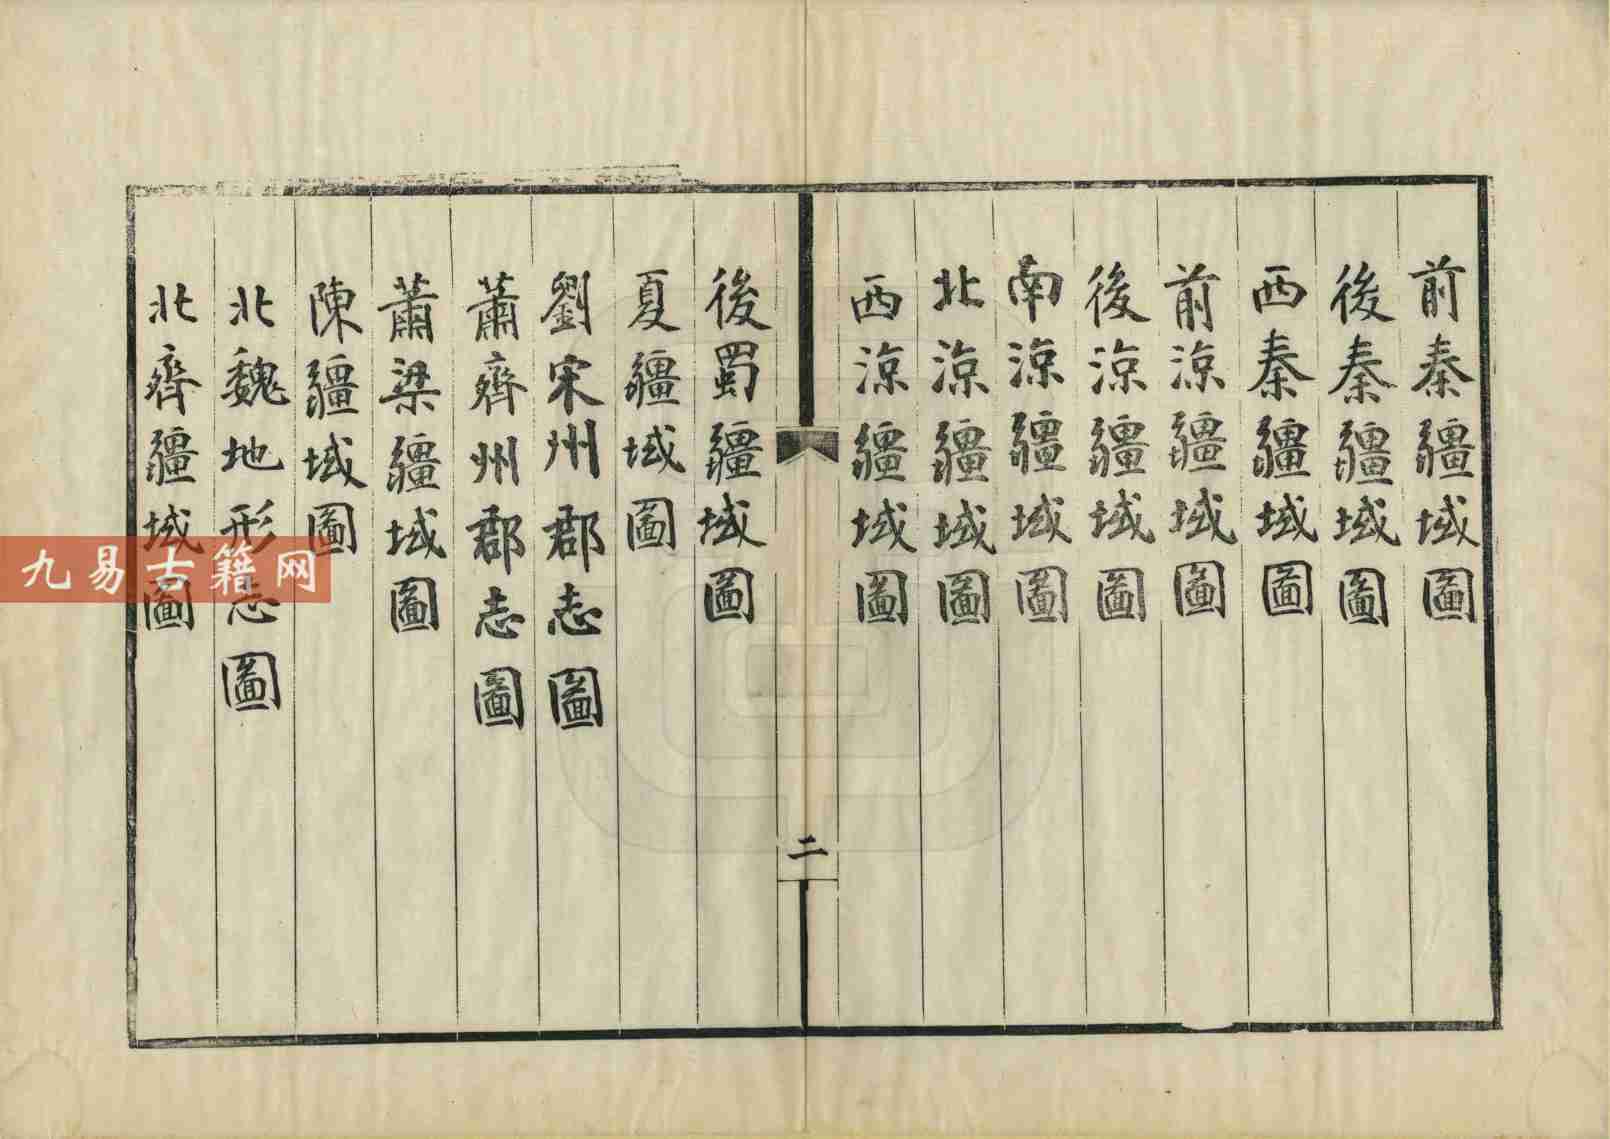 前秦疆域圖
後秦疆域圖
西秦疆域圖
前涼疆域圖
後涼疆域圖
南涼疆域圖
北涼疆域圖
西涼疆域圖
二
後蜀疆域圖
夏疆域圖
劉宋州郡志圖
蕭齊州郡志圖
蕭梁疆域圖
陳疆域圖
北魏地形志圖
北齊疆域圖
九易古籍网